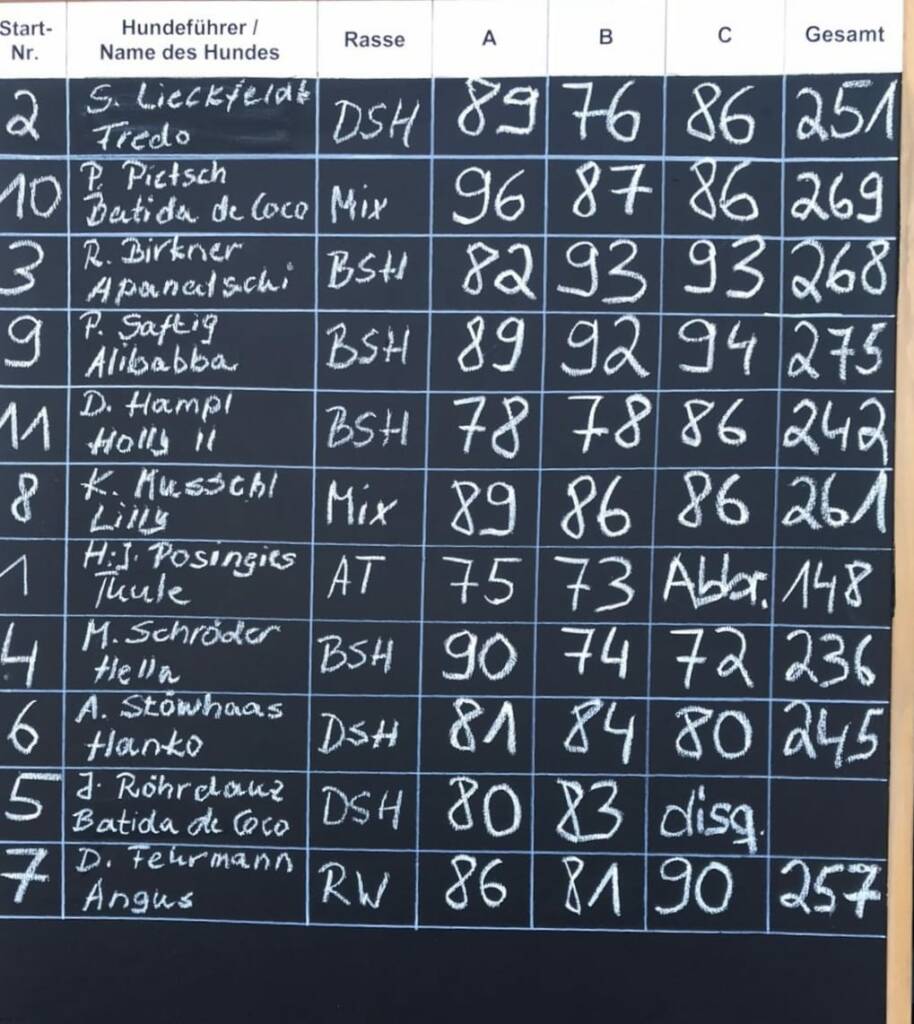 Start-Nr. Hundeführer / Name des Hundes Rasse A B C Gesamt
2 S. Lieckfeldt DSH 89 76 86 251
Fredo
10 P. Pietsch Mix 96 87 86 269
Batida de Coco
3 R. Birkner BSH 82 93 93 268
Apanatschi
9 P. Saftig BSH 89 92 94 275
Alibabba
11 D. Hampl BSH 78 78 86 242
Holly II
8 K. Musschl Mix 89 86 86 261
Lilly
1 H.J. Posingies AT 75 73 Abbr. 148
Thule
4 M. Schröder BSH 90 74 72 236
Hella
6 A. Stöwhaas DSH 81 84 80 245
Hanko
5 J. Röhrdanz DSH 80 83 disq.
Batida de Coco
7 D. Fehrmann RW 86 81 90 257
Angus